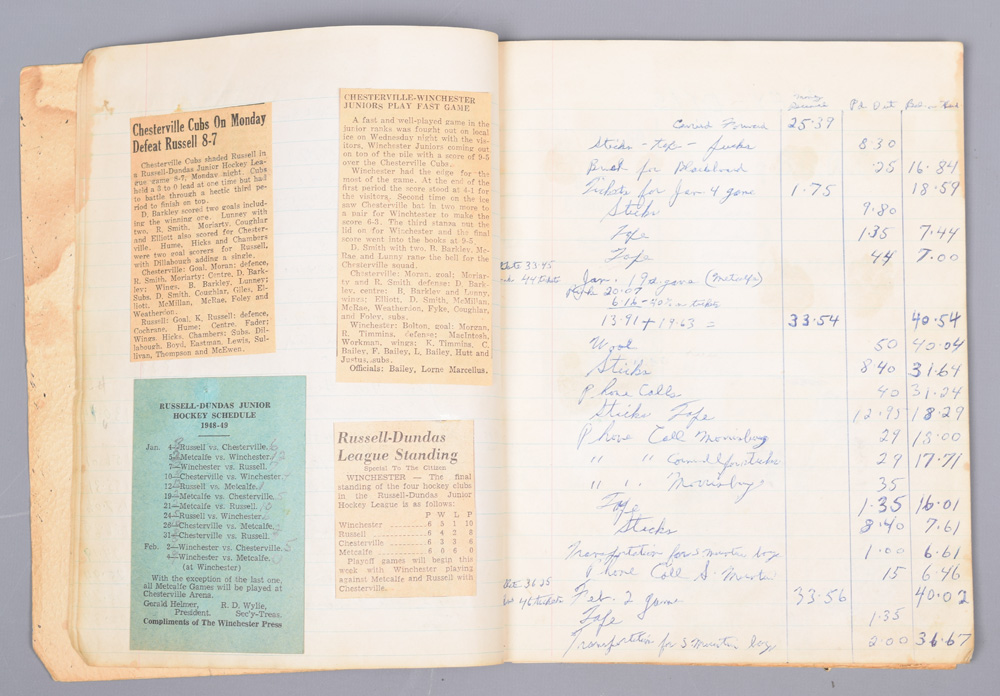 Chesterville Cubs On Monday
Defeat Russell 8-7
Chesterville Cubs shaded Russell in
a Russell-Dundas Junior Hockey Lea-
gue game 8-7, Monday night. Cubs
held a 3 to 0 lead at one time but had
to battle through a hectic third pe-
riod to finish on top.
D. Barkley scored two goals includ-
ing the winning one. Lunney with
two, R. Smith, Moriarty, Coughlar
and Elliott also scored for Chester-
ville. Hume, Hicks and Chambers
were two goal scorers for Russell,
with Dillabough adding a single.
Chesterville: Goal, Moran; defence,
R. Smith, Moriarty; Centre, D. Bark-
ley; Wings, B. Barkley, Lunney;
Subs, D. Smith, Coughlar, Giles, El-
liott, McMillan, McRae, Foley and
Weatherden.
Russell: Goal, K. Russell; defence,
Cochrane, Hume; Centre, Fader;
Wings, Hicks, Chambers; Subs, Dil-
labough, Boyd, Eastman, Lewis, Sul-
livan, Thompson and McEwen.
RUSSELL-DUNDAS JUNIOR
HOCKEY SCHEDULE
1948-49
Jan. 4—Russell vs. Chesterville.
5—Metcalfe vs. Winchester.
7—Winchester vs. Russell.
10—Chesterville vs. Winchester.
12—Russell vs. Metcalfe.
19—Metcalfe vs. Chesterville.
21—Metcalfe vs. Russell.
24—Russell vs. Winchester.
26—Chesterville vs. Metcalfe.
31—Chesterville vs. Russell.
Feb. 2—Winchester vs. Chesterville.
4—Winchester vs. Metcalfe.
(at Winchester)
With the exception of the last one,
all Metcalfe Games will be played at
Chesterville Arena.
Gerald Helmer, R. D. Wylie,
President. Sec'y-Treas.
Compliments of The Winchester Press
CHESTERVILLE-WINCHESTER
JUNIORS PLAY FAST GAME
A fast and well-played game in the
junior ranks was fought out on local
ice on Wednesday night with the vis-
itors, Winchester Juniors coming out
on top of the pile with a score of 9-5
over the Chesterville Cubs.
Winchester had the edge for the
most of the game. At the end of the
first period the score stood at 4-1 for
the visitors. Second time on the ice
saw Chesterville bat in two more to
a pair for Winchester to make the
score 6-3. The third stanza put the
lid on for Winchester and the final
score went into the books at 9-5.
D. Smith with two, R. Barkley, Mc-
Rae and Lunny rang the bell for the
Chesterville squad.
Chesterville: Moran, goal; Moriar-
ty and R. Smith defense; D. Bark-
ley, centre; B. Barkley and Lunny,
wings; Elliott, D. Smith, McMillan,
McRae, Weatherden, Fyke, Coughlar,
and Foley, subs.
Winchester: Bolton, goal; Morgan,
R. Timmins, defense; MacIntosh,
Workman, wings; K. Timmins, C.
Bailey, F. Bailey, L. Bailey, Hutt and
Justus, subs.
Officials: Bailey, Lorne Marcellus.
Russell-Dundas
League Standing
Special To The Citizen
WINCHESTER — The final
standing of the four hockey clubs
in the Russell-Dundas Junior
Hockey League is as follows:
P W L P
Winchester 6 5 1 10
Russell 6 4 2 8
Chesterville 6 3 3 6
Metcalfe 6 0 6 0
Playoff games will begin this
week with Winchester playing
against Metcalfe and Russell with
Chesterville.
Money Received Pd Out
Carried Forward 25.39
Sticks - Tape - Pucks 8.30
Brush for Blackboard 25 16.84
Tickets for Jan. 4 game 1.75 18.59
Sticks 9.80
Tape 1.35 7.44
Tape 44 7.00
33.45 Jan. 19 game (Metcalfe)
44 tickets 20.07
13.91 + 19.63 = 33.54 40.54
Wool 50 40.04
Sticks 8 40 31.64
Phone Calls 40 31.24
Sticks Tape 12.95 18.29
Phone Call Morrisburg 29 18.00
" " Cornwall for sticks 29 17.71
" " Morrisburg 35
Tape 1.35 16.01
Sticks 8.40 7.61
Transportation for S. Munster boy 1.00 6.61
Phone Call S. Munster 15 6.46
36.25
46 tickets Feb. 2 game 33.56 40.02
Tape 1.35
Transportation for S Munster boy 2.00 36.67